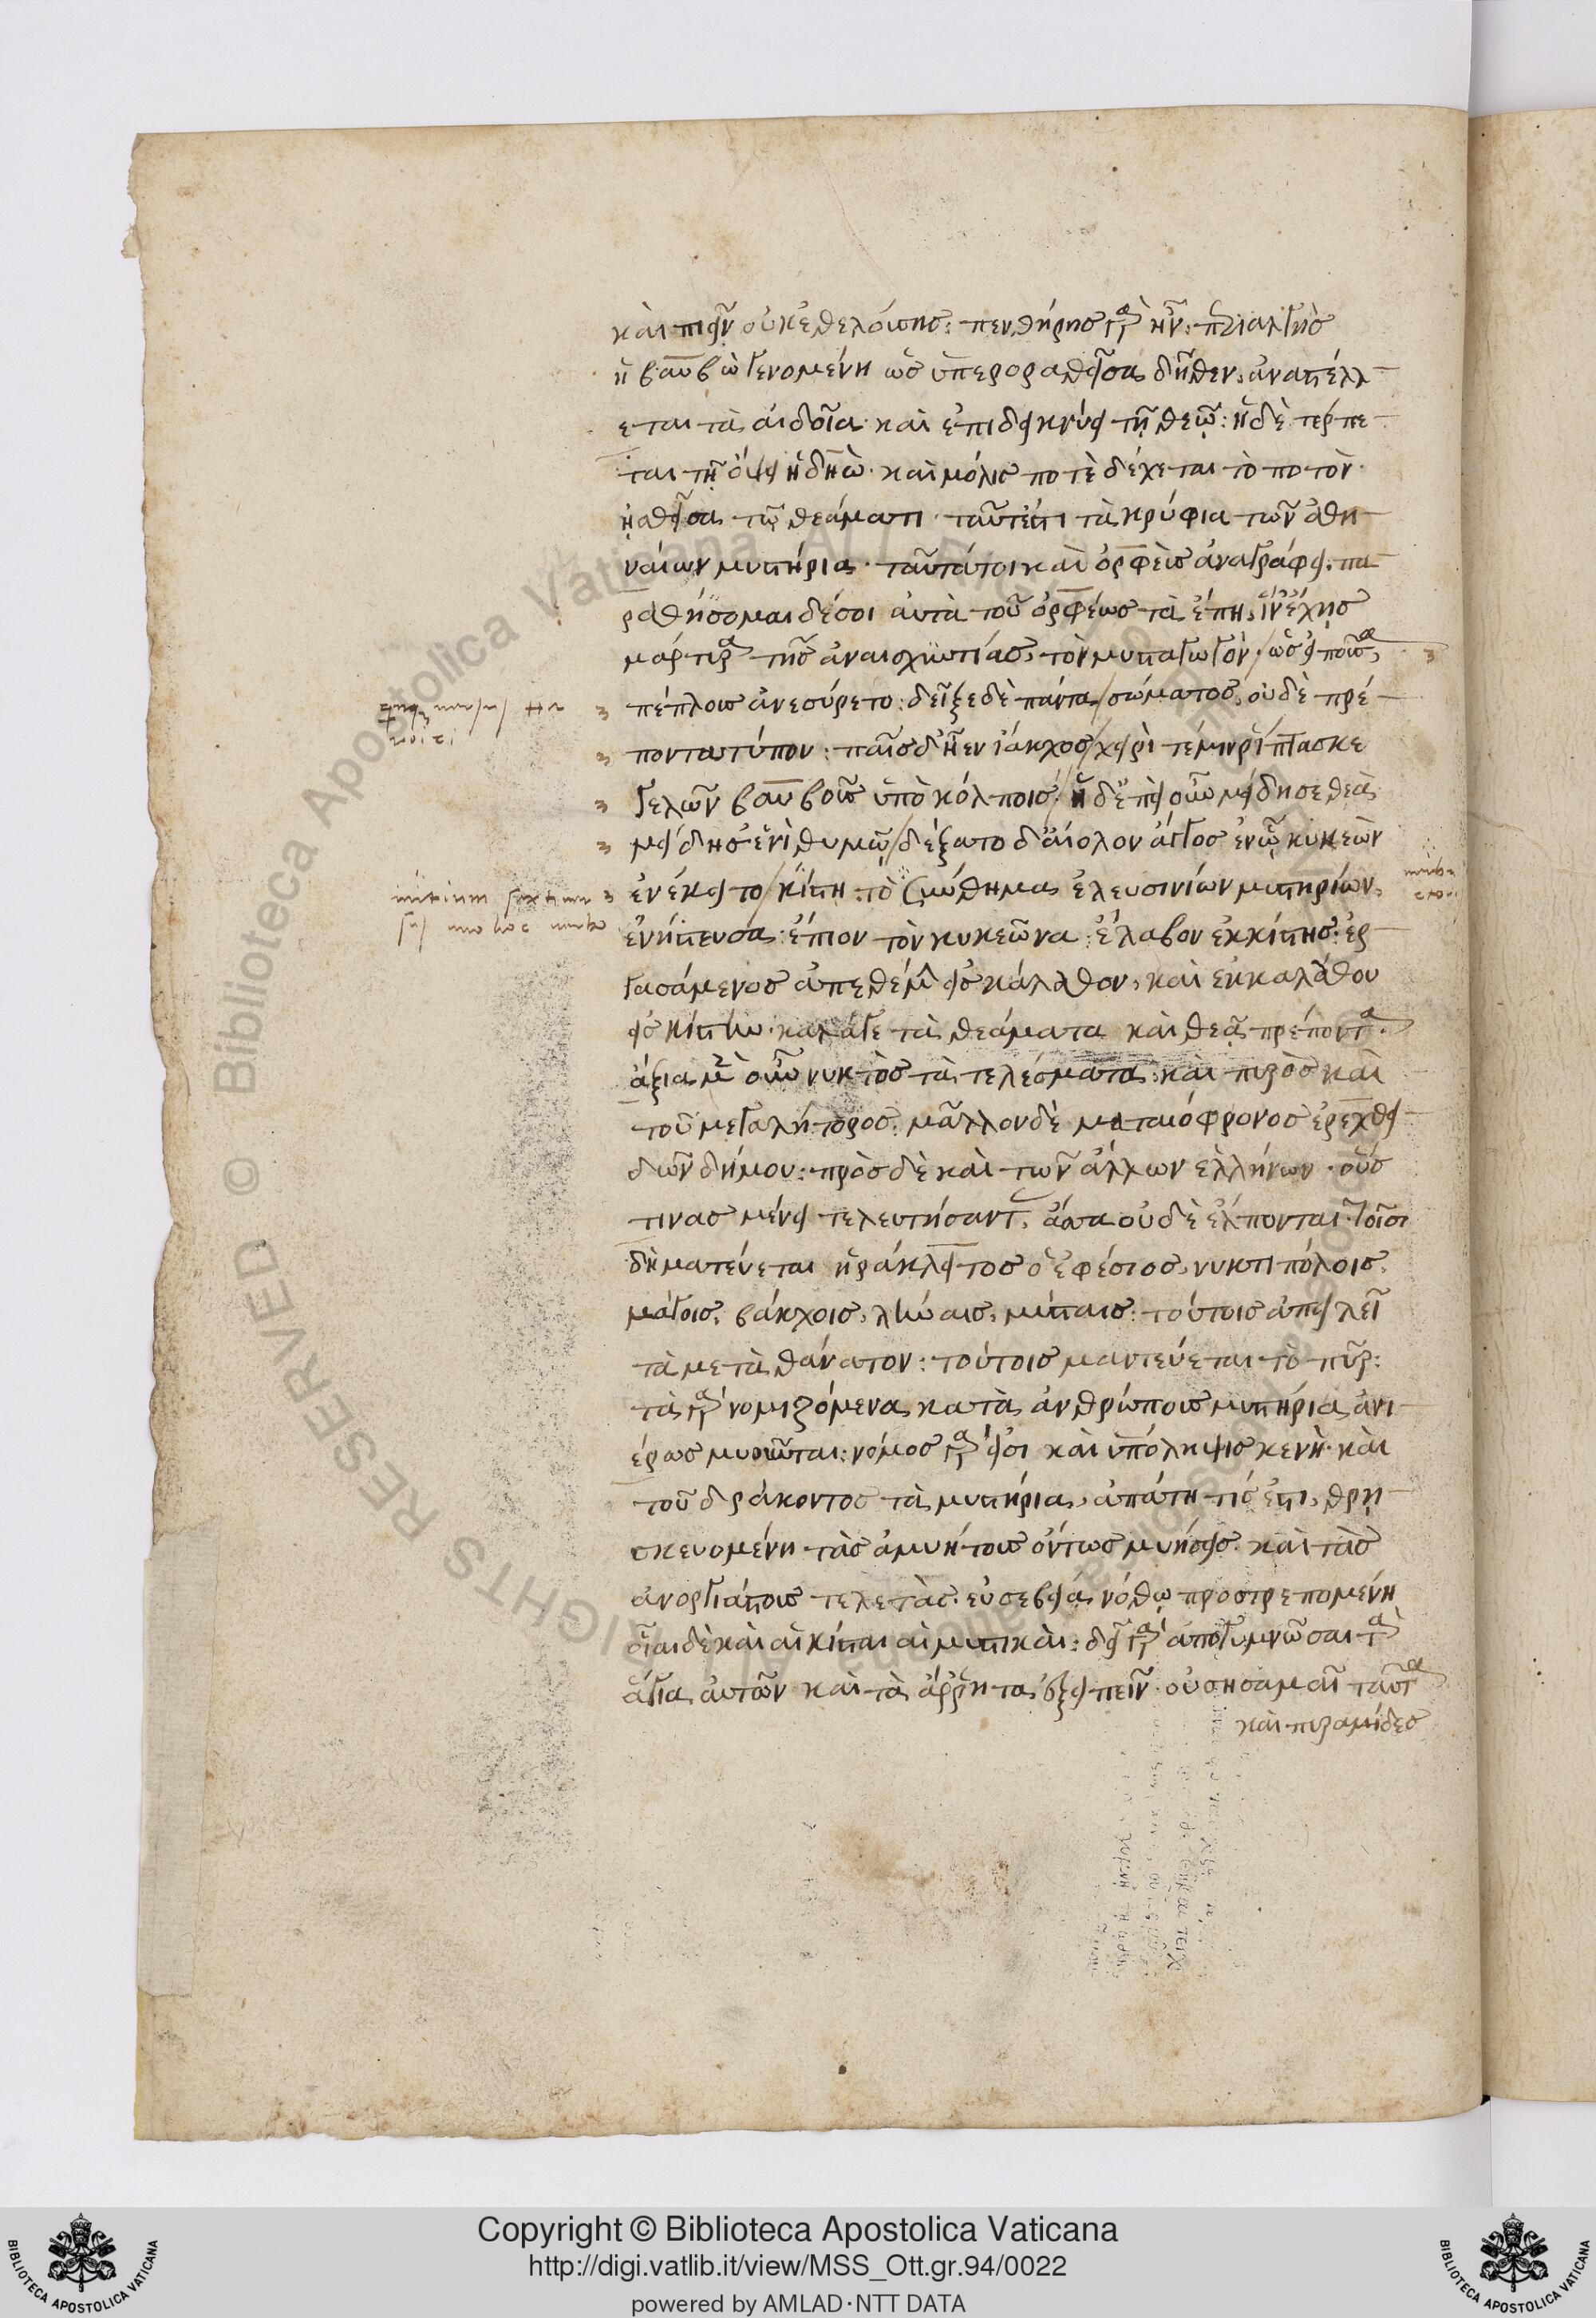 καὶ πιεῖν οὐκ ἐθελούσης: πενθήρης γὰρ ἦν: περιαλγὴς
ἡ βαυβὼ γενομένη ὡς ὑπεροραθεῖσα δῆθεν, ἀναστέλλ
εται τὰ αἰδοῖα· καὶ ἐπιδεικνύει τῇ θεῷ: ἡ δὲ τέρπε
ται τῇ ὄψει ἡ δηὼ· καὶ μόλις ποτὲ δέχεται τὸ ποτὸν·
ἡσθεῖσα τῷ θεάματι· ταῦτ' ἔστι τὰ κρύφια τῶν ἀθη
ναίων μυστήρια· ταῦτά τοι καὶ ὀρφεὺς ἀναγράφει. πα
ραθήσομαι δέ σοι αὐτὰ τοῦ ὀρφέως τὰ ἔπη, ἵν' ἔχῃς
μάρτυρα τῆς ἀναισχυντίας, τὸν μυσταγωγόν· / ὡς εἰποῦσα
πέπλους ἀνεσύρετο: δεῖξε δὲ πάντα / σώματος, οὐδὲ πρέ
ποντα τύπον: παῖς δ' ἦεν ἴακχος / χειρὶ τέ μιν ῥίπτασκε
γελῶν βαυβοῦς ὑπὸ κόλποις / ἡ δ' ἐπεὶ οὖν μείδησε θεὰ
μείδησ' ἐνὶ θυμῷ / δέξατο δ' αἰόλον ἄγγος ἐν ᾧ κυκεὼν
ἐνέκειτο / κἄστι τὸ σύνθημα ἐλευσινίων μυστηρίων.
ἐνήστευσα: ἔπιον τὸν κυκεῶνα: ἔλαβον ἐκ κίστης: ἐρ
γασάμενος ἀπεθέμην εἰς κάλαθον, καὶ ἐκ καλάθου
εἰς κίστην. καλά γε τὰ θεάματα καὶ θεᾷ πρέποντα.
ἄξια μὲν οὖν νυκτὸς τὰ τελέσματα: καὶ πυρὸς καὶ
τοῦ μεγαλήτορος. μᾶλλον δὲ ματαιόφρονος ἐρεχθει
δῶν δήμου: πρὸς δὲ καὶ τῶν ἄλλων ἑλλήνων· οὕσ
τινας μένει τελευτήσαντας ἅσσα οὐδὲ ἔλπονται. τοῖσι
δὴ μαντεύεται ἡράκλειτος ὁ ἐφέσιος, νυκτιπόλοις.
μάγοις, βάκχοις, λήναις, μύσταις· τούτοις ἀπειλεῖ
τὰ μετὰ θάνατον: τούτοις μαντεύεται τὸ πῦρ:
τὰ γὰρ νομιζόμενα κατὰ ἀνθρώπους μυστήρια ἀνι
έρως μυοῦνται: νόμος γὰρ εἰσι καὶ ὑπόληψις κενὴ· καὶ
τοῦ δράκοντος τὰ μυστήρια, ἀπάτη τίς ἐστι, θρη
σκευομένη τὰς ἀμυήτους ὄντως μυήσεις· καὶ τὰς
ἀνοργιάστους τελετὰς· εὐσεβείᾳ νόθῳ προστρεπομένη
οἷαι δὲ καὶ αἱ κίσται αἱ μυστικαὶ: δεῖ γὰρ ἀπογυμνῶσαι τὰ
ἅγια αὐτῶν καὶ τὰ ἄρρητα ἐξειπεῖν· οὐ σησαμαῖ ταῦτα
καὶ πυραμίδες